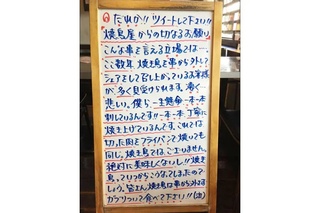 だれか!!ツイートして下さい!!
焼鳥屋からの切なるお願い
こんな事を言える立場では…
ここ数年焼き鳥を串から外して
シェアをして召し上がっているお客様
が多く見受けられます。凄く
悲しい。僕ら一生懸命一本一本
刺しているんです!!一本一本丁寧に
焼き上げているんです。これでは
切った肉をフライパンで焼いても
同じ。焼き鳥では、ございません。
絶対に美味しくないし!!焼き
鳥っていつからこうなってしまったので
しょう。皆さん焼鳥は串から外さず
ガブリついて食べて下さい!!